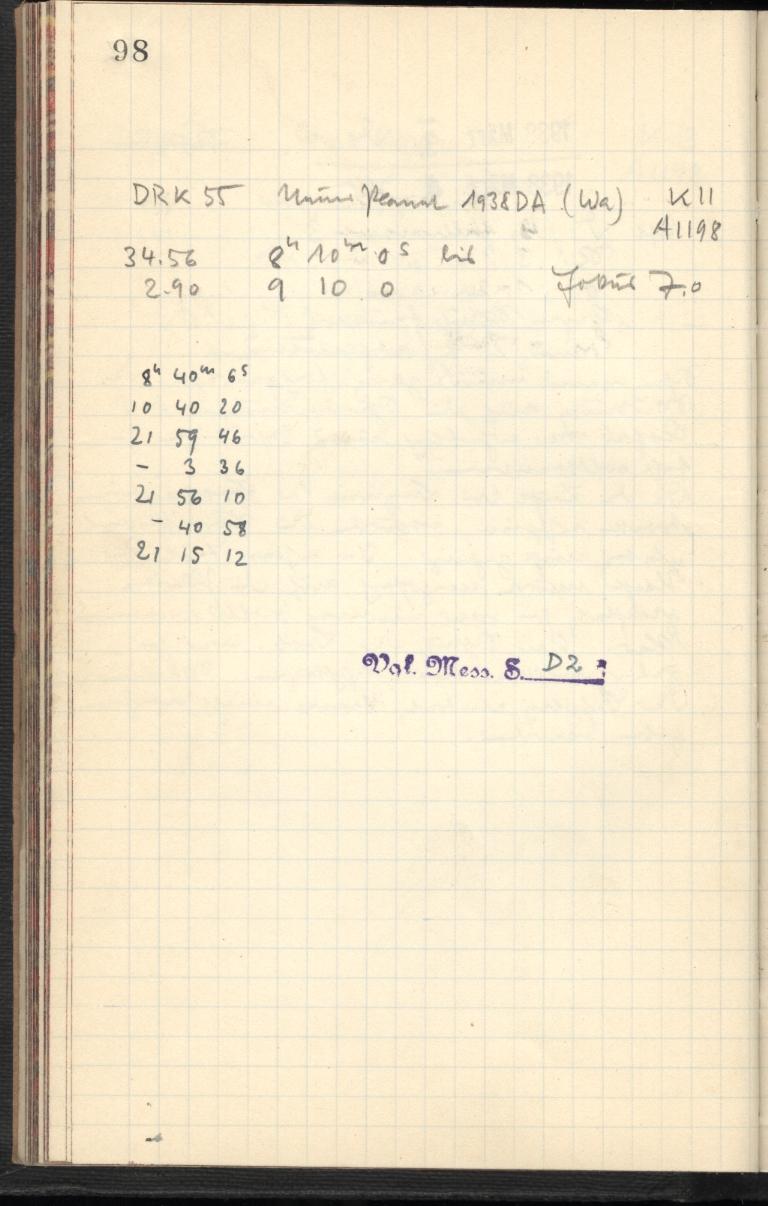 98
DRK 55 Kleiner Planet 1938DA (Wa) K11
A1198
34.56 8h 10m 0s bis
2.90 9 10 0 Fokus 7.0
8h 40m 6s
10 40 20
21 59 46
- 3 36
21 56 10
- 40 58
21 15 12
Vgl. Mess. S. D2